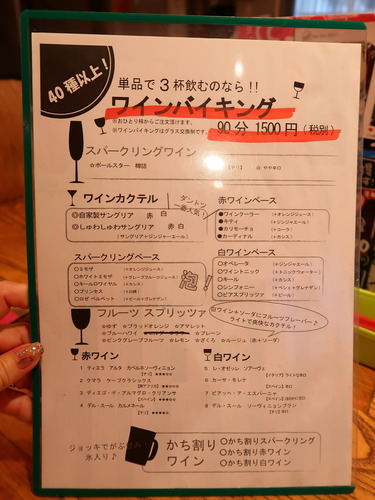 40種以上!
単品で3杯飲むのなら!!
ワインバイキング
※おひとり様からご注文頂けます。
※ワインバイキングはグラス交換制です。
90分 1500円(税別)
スパークリングワイン
☆ポールスター 樽詰
白 やや辛口
ワインカクテル
◎自家製サングリア 赤 白
◎しゅわしゅわサングリア 赤 白
(サングリア+ジンジャーエール)
ダントツ一番人気!
赤ワインベース
●ワインクーラー (+オレンジジュース)
●キティ (+ジンジャーエール)
●カリモーチョ (+コーラ)
●カーディナル (+カシス)
スパークリングベース
○ミモザ (+オレンジジュース)
○ホワイトミモザ (+グレープフルーツジュース)
○キールロワイヤル (+カシス)
○プリンセス
○ロゼ ペルベット (+ビール+グレナデン)
泡!
白ワインベース
○オペレータ (+ジンジャエール)
○ワイントニック (+トニックウォーター)
○キール (+カシス)
○シンフォニー
○ビアスプリッツァ (+ビール)
フルーツ スプリッツァ
白ワイン+ソーダにフルーツフレーバー♪
ライトで爽快なカクテル!
☆ゆず ☆ブラッドオレンジ ☆アマレット
☆ブルーハワイ
☆グリーン
☆ピンクグレープフルーツ ☆レモン ☆ざくろ ☆ルージュ(赤+ソーダ)
赤ワイン
1 ティエラ アルタ カベルネソーヴィニョン
2 ケマラ ケープクラシックス
3 ディエゴ・デ・アルマグロ・クリアンサ
4 デル・スール カルメネール
白ワイン
5 レ・オゼッレ ソアーヴェ
6 カーサ・モレナ
7 ピアッベ・ア・エスパーニャ
8 デル・スール ソーヴィニョンブラン
ジョッキでがぶ飲み!
氷入り♪
かち割りワイン
○かち割りスパークリング
○かち割り赤ワイン
○かち割り白ワイン